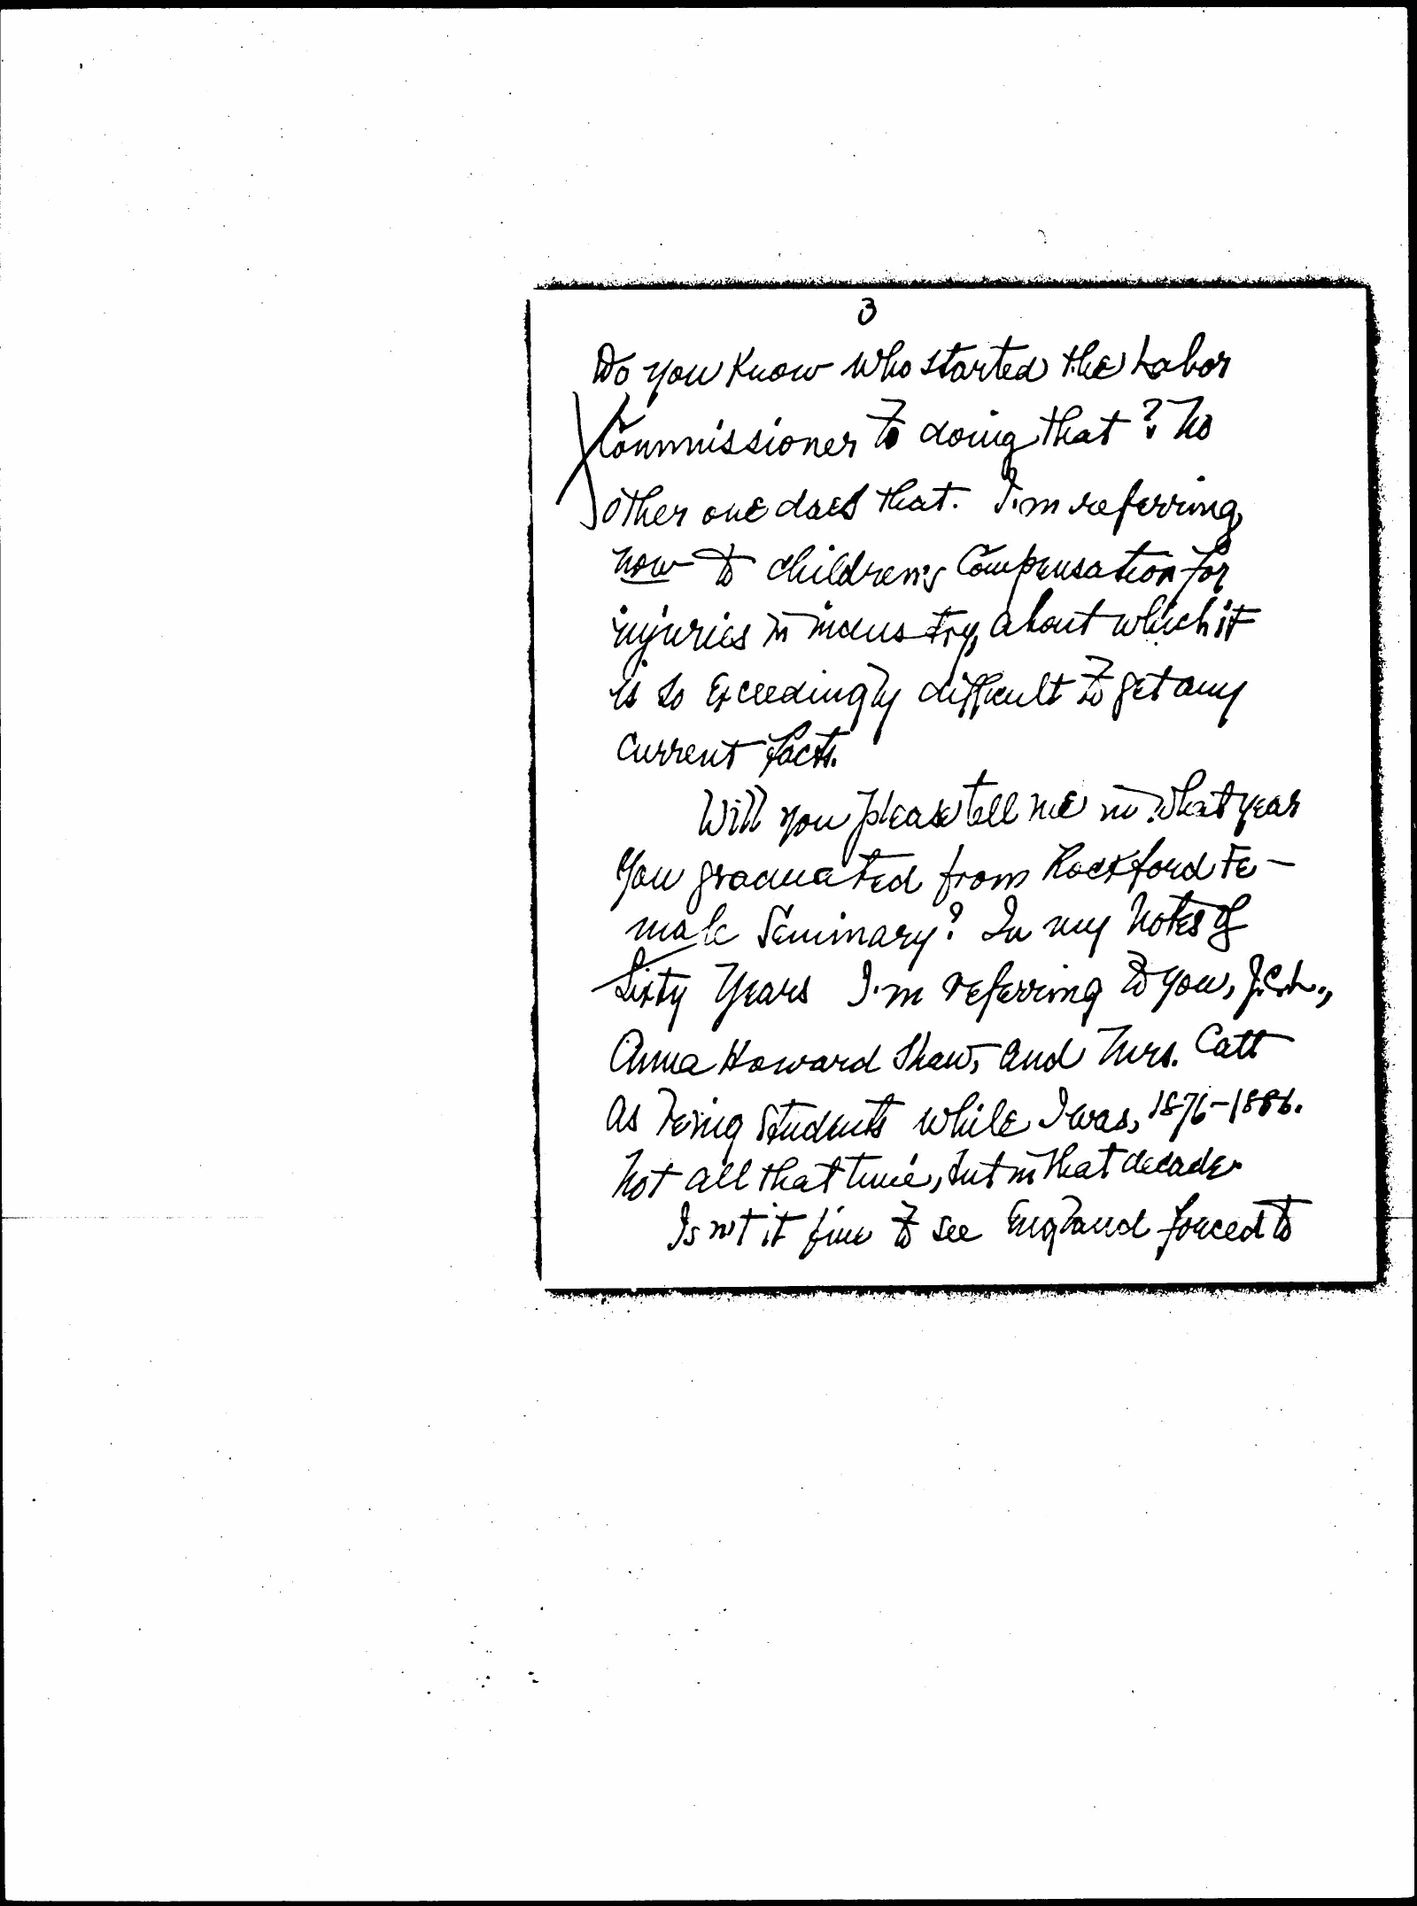 3
Do you know who started the Labor
Commissioner to doing that? No
other one does that. I'm referring,
now to children's Compensation for
injuries in industry, about which it
is so exceedingly difficult to get any
current facts.
Will you please tell me in what year
you graduated from Rockford Fe-
male Seminary? In my Notes of
Sixty Years I'm referring to you, J.C.L.,
Anna Howard Shaw, and Mrs. Catt
as being students while I was, 1876-1886.
Not all that time, but in that decade.
Isn't it fine to see England forced to